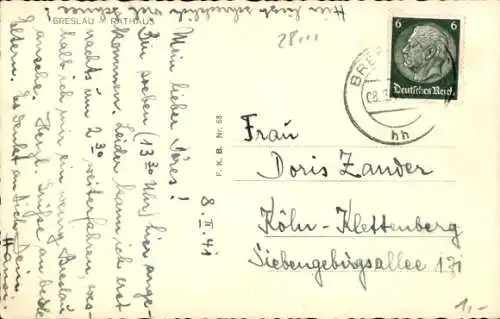 BRESLAU RATHAUS
Hier liegt schrecklich viel Schnee!
28...
Mein lieber Dores!
8. II. 41
Bin soeben (13³⁰ Uhr) hier ange-
kommen. Leider kann ich erst
nachts um 2³⁰ weiterfahren, wes-
halb ich mir ein wenig Breslau
ansehe. Herzl. Grüße an beide
Eltern. Es denkt an Dich Dein
Hansi.
F. K. B. Nr. 58
6 6
Deutsches Reich
BRE
08.
hh
Frau
Doris Zander
Köln-Klettenberg
Siebengebirgsallee 171
1,-